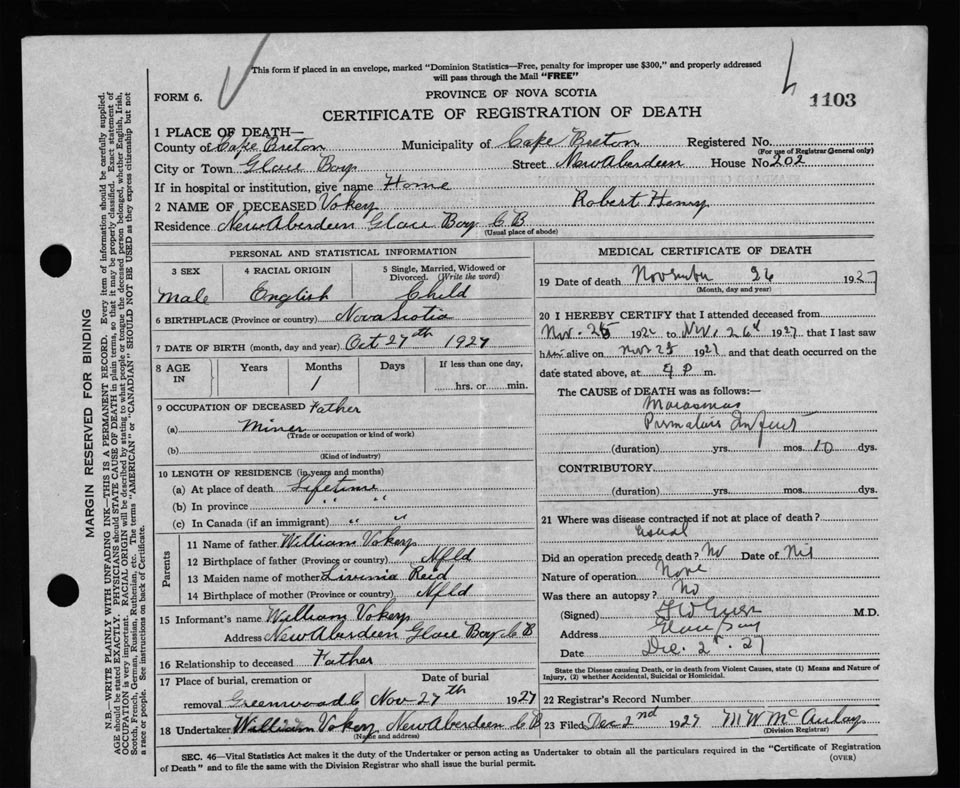 This form if placed in an envelope, marked "Dominion Statistics—Free, penalty for improper use $300," and properly addressed
will pass through the Mail "FREE"
FORM 6.
PROVINCE OF NOVA SCOTIA
1103
CERTIFICATE OF REGISTRATION OF DEATH
1 PLACE OF DEATH—
County of Cape Breton Municipality of Cape Breton Registered No.
(For use of Registrar General only)
City or Town Glace Bay Street New Aberdeen House No. 202
If in hospital or institution, give name Home
2 NAME OF DECEASED Vokey Robert Henry
Residence New Aberdeen Glace Bay C B
(Usual place of abode)
PERSONAL AND STATISTICAL INFORMATION
3 SEX
Male
4 RACIAL ORIGIN
English
5 Single, Married, Widowed or
Divorced. (Write the word)
Child
6 BIRTHPLACE (Province or Country) Nova Scotia
7 DATE OF BIRTH (month, day and year) Oct 27th 1927
8 AGE
IN
Years
Months
1
Days
If less than one day,
hrs. or min.
9 OCCUPATION OF DECEASED Father
(a) Miner
(Trade or occupation or kind of work)
(b)
(Kind of industry)
10 LENGTH OF RESIDENCE (in years and months)
(a) At place of death Lifetime
(b) In province " "
(c) In Canada (if an immigrant) " "
Parents
11 Name of father William Vokey
12 Birthplace of father (Province or country) Nfld
13 Maiden name of mother Livinia Reid
14 Birthplace of mother (Province or country) Nfld
15 Informant's name William Vokey
Address New Aberdeen Glace Bay C B
16 Relationship to deceased Father
17 Place of burial, cremation or Date of burial
removal Greenwood C Nov 27th 1927
18 Undertaker William Vokey New Aberdeen C B
(Name and address)
MEDICAL CERTIFICATE OF DEATH
19 Date of death November 26 1927
(Month, day and year)
20 I HEREBY CERTIFY that I attended deceased from
Nov. 192 to Nov. 26 1927 that I last saw
him alive on Nov 25 1927 and that death occurred on the
date stated above, at P m.
The CAUSE OF DEATH was as follows:—
Marasmus
Premature Infant
(duration) yrs. mos. 10 dys.
CONTRIBUTORY
(duration) yrs. mos. dys.
21 Where was disease contracted if not at place of death?
Usual
Did an operation precede death? No Date of Nil
Nature of operation None
Was there an autopsy? No
(Signed) M.D.
Address Glace Bay
Date Dec. 2 27
State the Disease causing Death, or in death from Violent Causes, state (1) Means and Nature of
Injury, (2) whether Accidental, Suicidal or Homicidal.
22 Registrar's Record Number
23 Filed Dec 2nd 1927 M W McAulay
(Division Registrar)
SEC. 46—Vital Statistics Act makes it the duty of the Undertaker or person acting as Undertaker to obtain all the particulars required in the "Certificate of Registration
of Death" and to file the same with the Division Registrar who shall issue the burial permit.
(OVER)
MARGIN RESERVED FOR BINDING
N.B.—WRITE PLAINLY WITH UNFADING INK—THIS IS A PERMANENT RECORD. Every item of information should be carefully supplied.
AGE should be stated EXACTLY. PHYSICIANS should STATE CAUSE OF DEATH in plain terms, so that it may be properly classified. Exact statement of
OCCUPATION is very important. RACIAL ORIGIN will be described by stating to what people or tongue the deceased person belonged, whether English, Irish,
Scotch, French, German, Russian, Ruthenian, etc. The terms "AMERICAN" or "CANADIAN" SHOULD NOT BE USED as they express citizenship but not
a race or people. See instructions on back of Certificate.